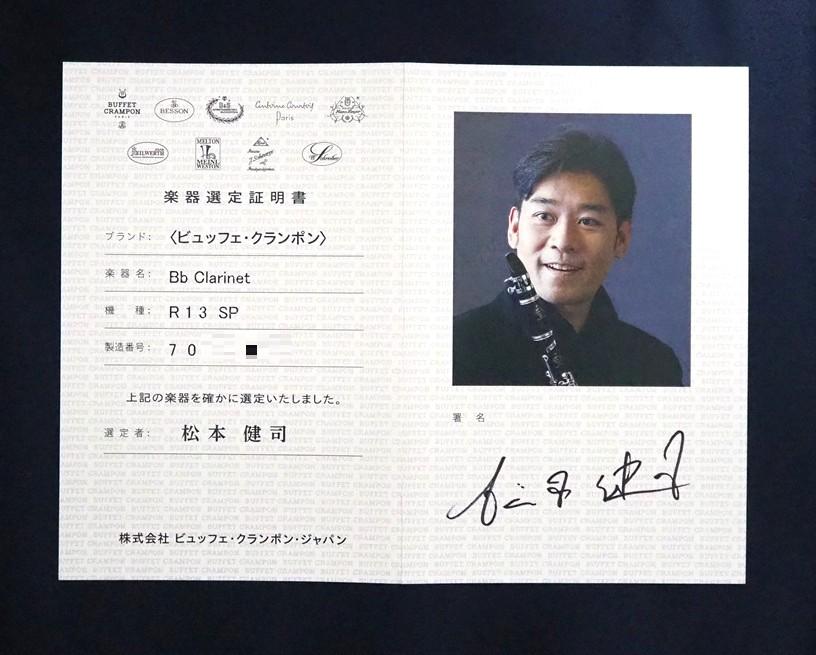 BUFFET
CRAMPON
PARIS
BESSON
B&S
Antoine Courtois
Paris
Hans Hoyer
JKEILWERTH
MELTON
MEINL
WESTON
J. Scherzer
Schreiber
楽器選定証明書
ブランド: 〈ビュッフェ・クランポン〉
楽器名: Bb Clarinet
機 種: R13 SP
製造番号: 70
上記の楽器を確かに選定いたしました。
選定者: 松本 健司
株式会社 ビュッフェ・クランポン・ジャパン
署 名
松本 健司